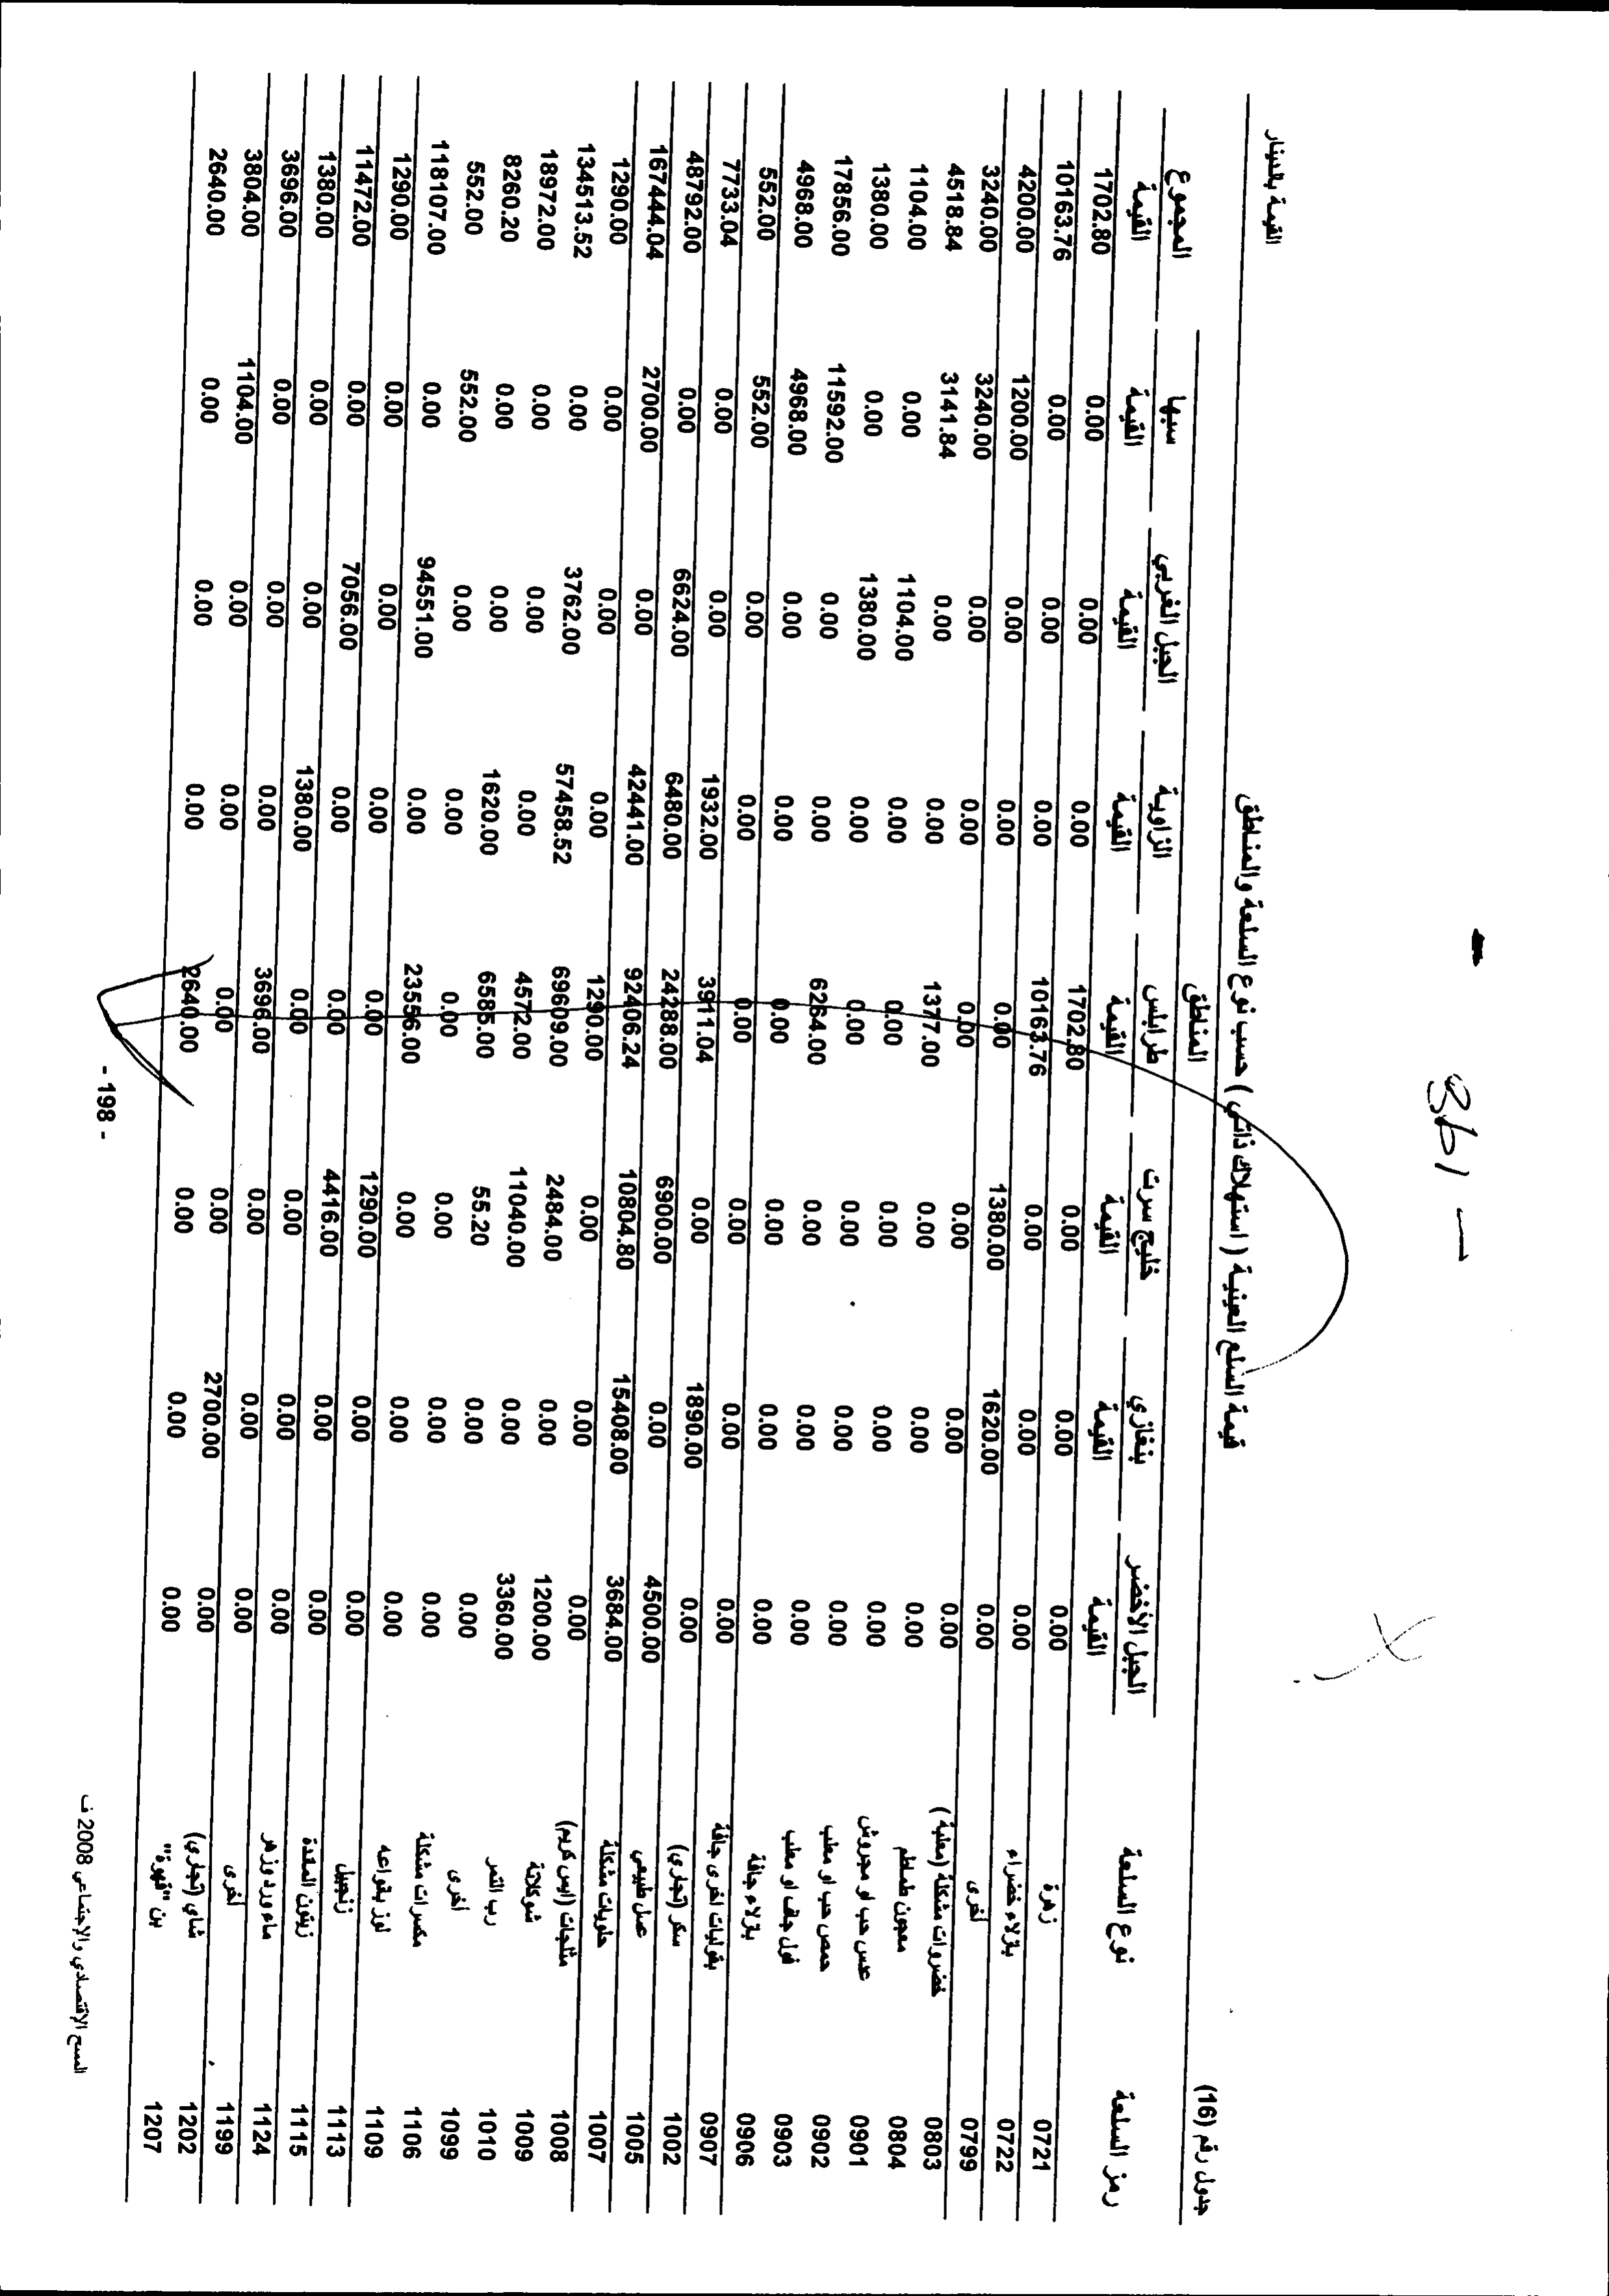 - 198 -
جدول رقم (16)
قيمة السلع العينية ( استهلاك ذاتي ) حسب نوع السلعة والمناطق
القيمة بالدينار
المناطق
رمز السلعة نوع السلعة الجبل الأخضر بنغازي خليج سرت طرابلس الزاوية الجبل الغربي سبها المجموع
القيمة القيمة القيمة القيمة القيمة القيمة القيمة القيمة
0721 زهرة 0.00 0.00 0.00 1702.80 0.00 0.00 0.00 1702.80
0722 بازلاء خضراء 0.00 0.00 0.00 10163.76 0.00 0.00 0.00 10163.76
0799 أخرى 0.00 1620.00 1380.00 0.00 0.00 0.00 1200.00 4200.00
0803 خضروات مشكلة (معلبة) 0.00 0.00 0.00 0.00 0.00 0.00 3240.00 3240.00
0804 معجون طماطم 0.00 0.00 0.00 1377.00 0.00 0.00 3141.84 4518.84
0901 عدس حب او مجروش 0.00 0.00 0.00 0.00 0.00 1104.00 0.00 1104.00
0902 حمص حب او معلب 0.00 0.00 0.00 0.00 0.00 1380.00 0.00 1380.00
0903 فول جاف او معلب 0.00 0.00 0.00 6264.00 0.00 0.00 11592.00 17856.00
0906 بازلاء جافة 0.00 0.00 0.00 0.00 0.00 0.00 4968.00 4968.00
0907 بقوليات اخرى جافة 0.00 0.00 0.00 0.00 0.00 0.00 552.00 552.00
1002 سكر (تجاري) 0.00 1890.00 0.00 3911.04 1932.00 0.00 0.00 7733.04
1005 عسل طبيعي 4500.00 0.00 6900.00 24288.00 6480.00 6624.00 0.00 48792.00
1007 حلويات مشكلة 3684.00 15408.00 10804.80 92406.24 42441.00 0.00 2700.00 167444.04
1008 مثلجات (ايس كريم) 0.00 0.00 0.00 1290.00 0.00 0.00 0.00 1290.00
1009 شوكلاتة 1200.00 0.00 2484.00 69609.00 57458.52 3762.00 0.00 134513.52
1010 رب التمر 3360.00 0.00 11040.00 4572.00 0.00 0.00 0.00 18972.00
1099 أخرى 0.00 0.00 55.20 6585.00 1620.00 0.00 0.00 8260.20
1106 مكسرات مشكلة 0.00 0.00 0.00 0.00 0.00 0.00 552.00 552.00
1109 لوز بقواعه 0.00 0.00 0.00 23556.00 0.00 94551.00 0.00 118107.00
1113 زنجبيل 0.00 0.00 1290.00 0.00 0.00 0.00 0.00 1290.00
1115 زيتون المعدة 0.00 0.00 4416.00 0.00 0.00 7056.00 0.00 11472.00
1124 ماء ورد وزهر 0.00 0.00 0.00 0.00 1380.00 0.00 0.00 1380.00
1199 أخرى 0.00 0.00 0.00 3696.00 0.00 0.00 0.00 3696.00
1202 شاي (تجاري) 0.00 2700.00 0.00 0.00 0.00 0.00 1104.00 3804.00
1207 بن "قهوة" 0.00 0.00 0.00 2640.00 0.00 0.00 0.00 2640.00
المسح الإقتصادي والإجتماعي 2008 ف
- 198 -